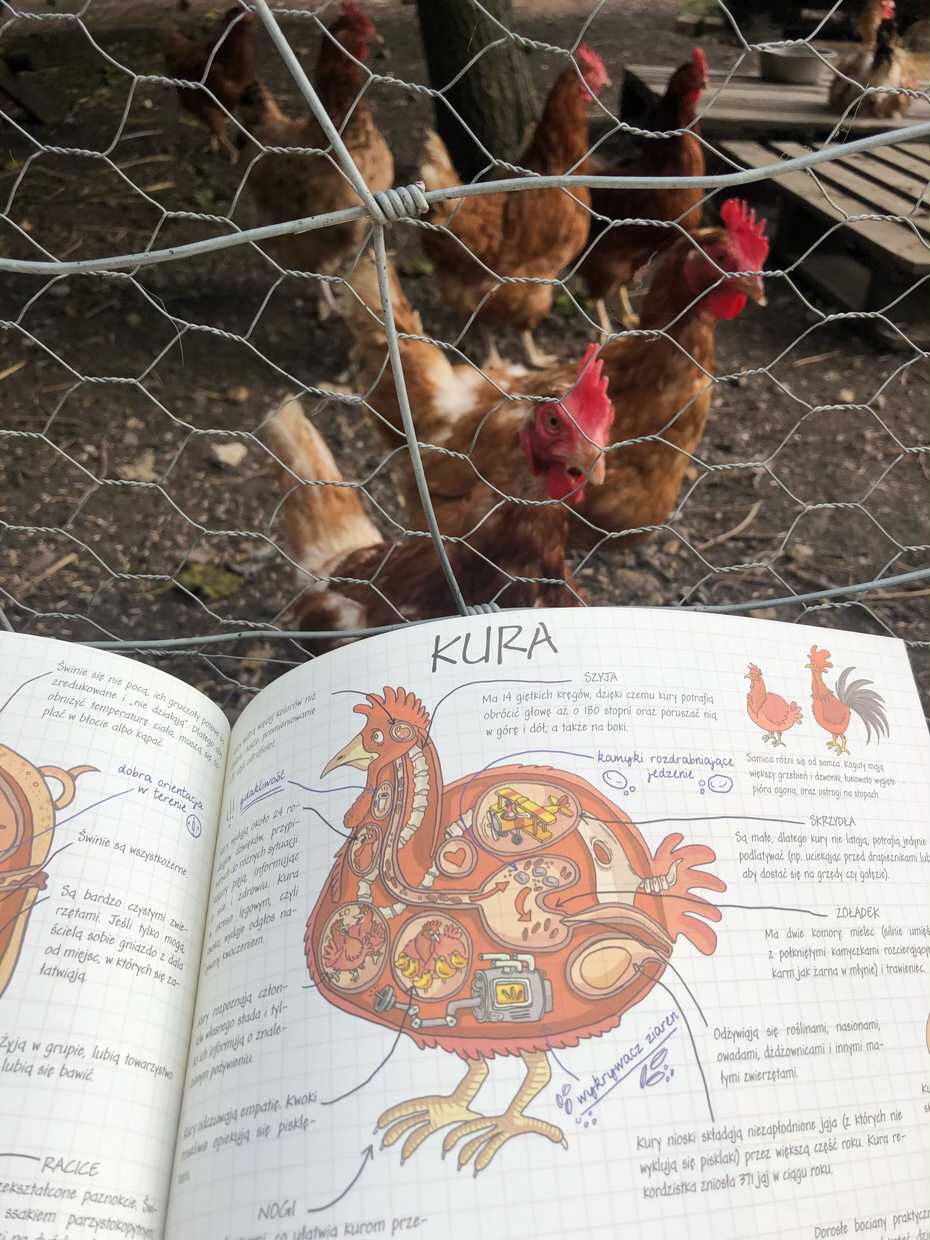 Świnie się nie pocą, ich gruczoły potowe są
zredukowane i „nie działają”. Dlatego
obniżyć temperaturę ciała, muszą się
plać w błocie albo kąpać.
dobra orientacja
w terenie
Świnie są wszystkożerne
Są bardzo czystymi zwie-
rzętami. Jeśli tylko mogą,
ścielą sobie gniazdo z dala
od miejsc, w których się za-
łatwiają.
Żyją w grupie, lubią towarzystwo
lubią się bawić.
RACICE
zekształcone paznokcie. Świ-
ssakiem parzystokopytnym
KURA
więcej kolorów niż
także promieniowanie
gdakliwość
wydają około 24 ro-
dźwięków, przypi-
różnych sytuacji
pieją, informując
i zdrowiu. Kura
okresie lęgowym, czyli
wydaje odgłos na-
kwoczeniem.
rozpoznają człon-
własnego stada i tyl-
ich informują o znale-
pożywieniu.
Kury odczuwają empatię. Kwoki
opiekują się pisklę-
NOGI
co ułatwia kurom prze-
SZYJA
Ma 14 giętkich kręgów, dzięki czemu kury potrafią
obrócić głowę aż o 180 stopni oraz poruszać nią
w górę i dół, a także na boki.
kamyki rozdrabniające
jedzenie
Samica różni się od samca. Koguty mają
większy grzebień i dzwonki, łukowato wygięte
pióra ogona, oraz ostrogi na stopach.
SKRZYDŁA
Są małe, dlatego kury nie latają, potrafią jedynie
podlatywać (np. uciekając przed drapieżnikami lub
aby dostać się na grzędy czy gałęzie).
ŻOŁĄDEK
Ma dwie komory: mielec (silnie umięś
z połkniętymi kamyczkami rozcierającym
karm jak żarna w młynie) i trawieniec.
Odżywiają się roślinami, nasionami,
owadami, dżdżownicami i innymi ma-
łymi zwierzętami.
wykrywacz ziaren
Kury nioski składają niezapłodnione jaja (z których nie
wyklują się pisklaki) przez większą część roku. Kura re-
kordzistka zniosła 371 jaj w ciągu roku.
Dorosłe bociany praktyczn